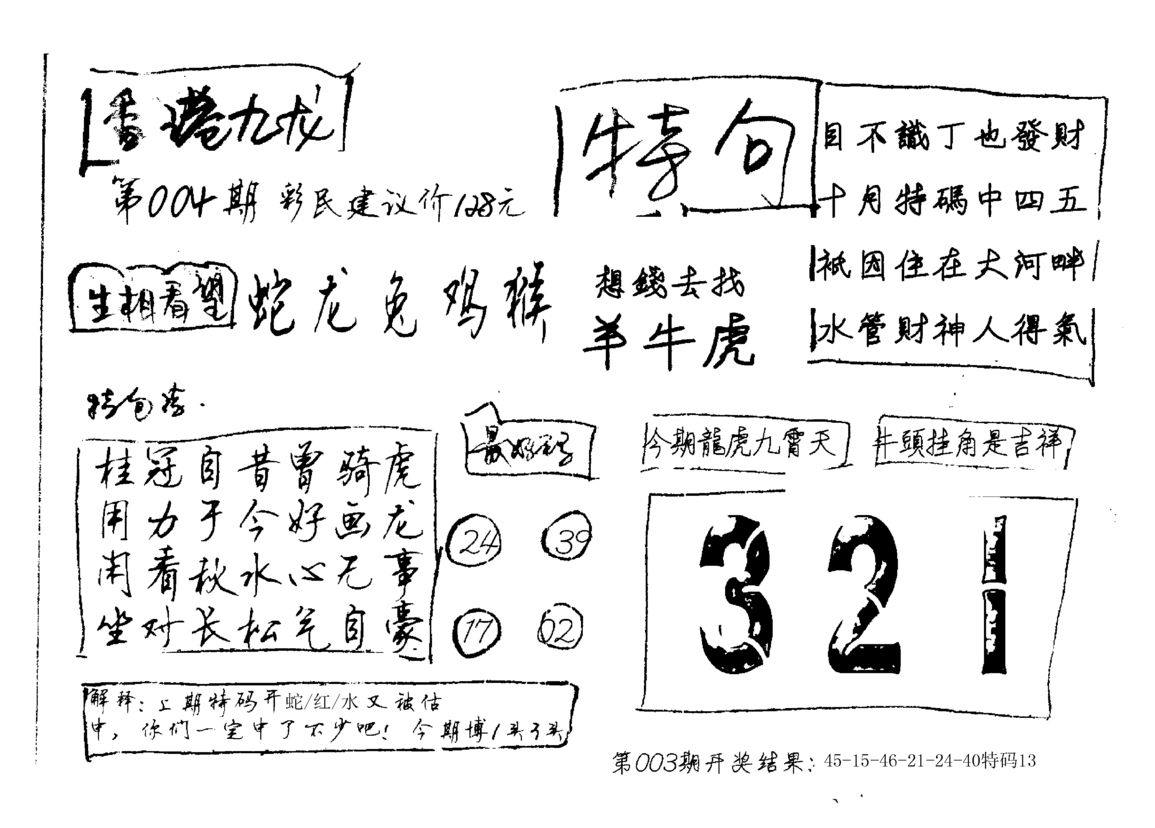 香港九龙
第004期 彩民建议价128元
特句
目不識丁也發財
十月特碼中四五
祇因住在大河畔
水管財神人得氣
生相看望
蛇龙兔鸡猴
想錢去找
羊牛虎
特包孝.
桂冠自昔曾骑虎
用力于今好画龙
闲看秋水心无事
坐对长松气自豪
最好码
24 39
17 02
今期龍虎九霄天
牛頭挂角是吉祥
321
解释:上期特码开蛇/红/水又被估
中,你们一定中了不少吧!今期博1头3头
第003期开奖结果:45-15-46-21-24-40特码13